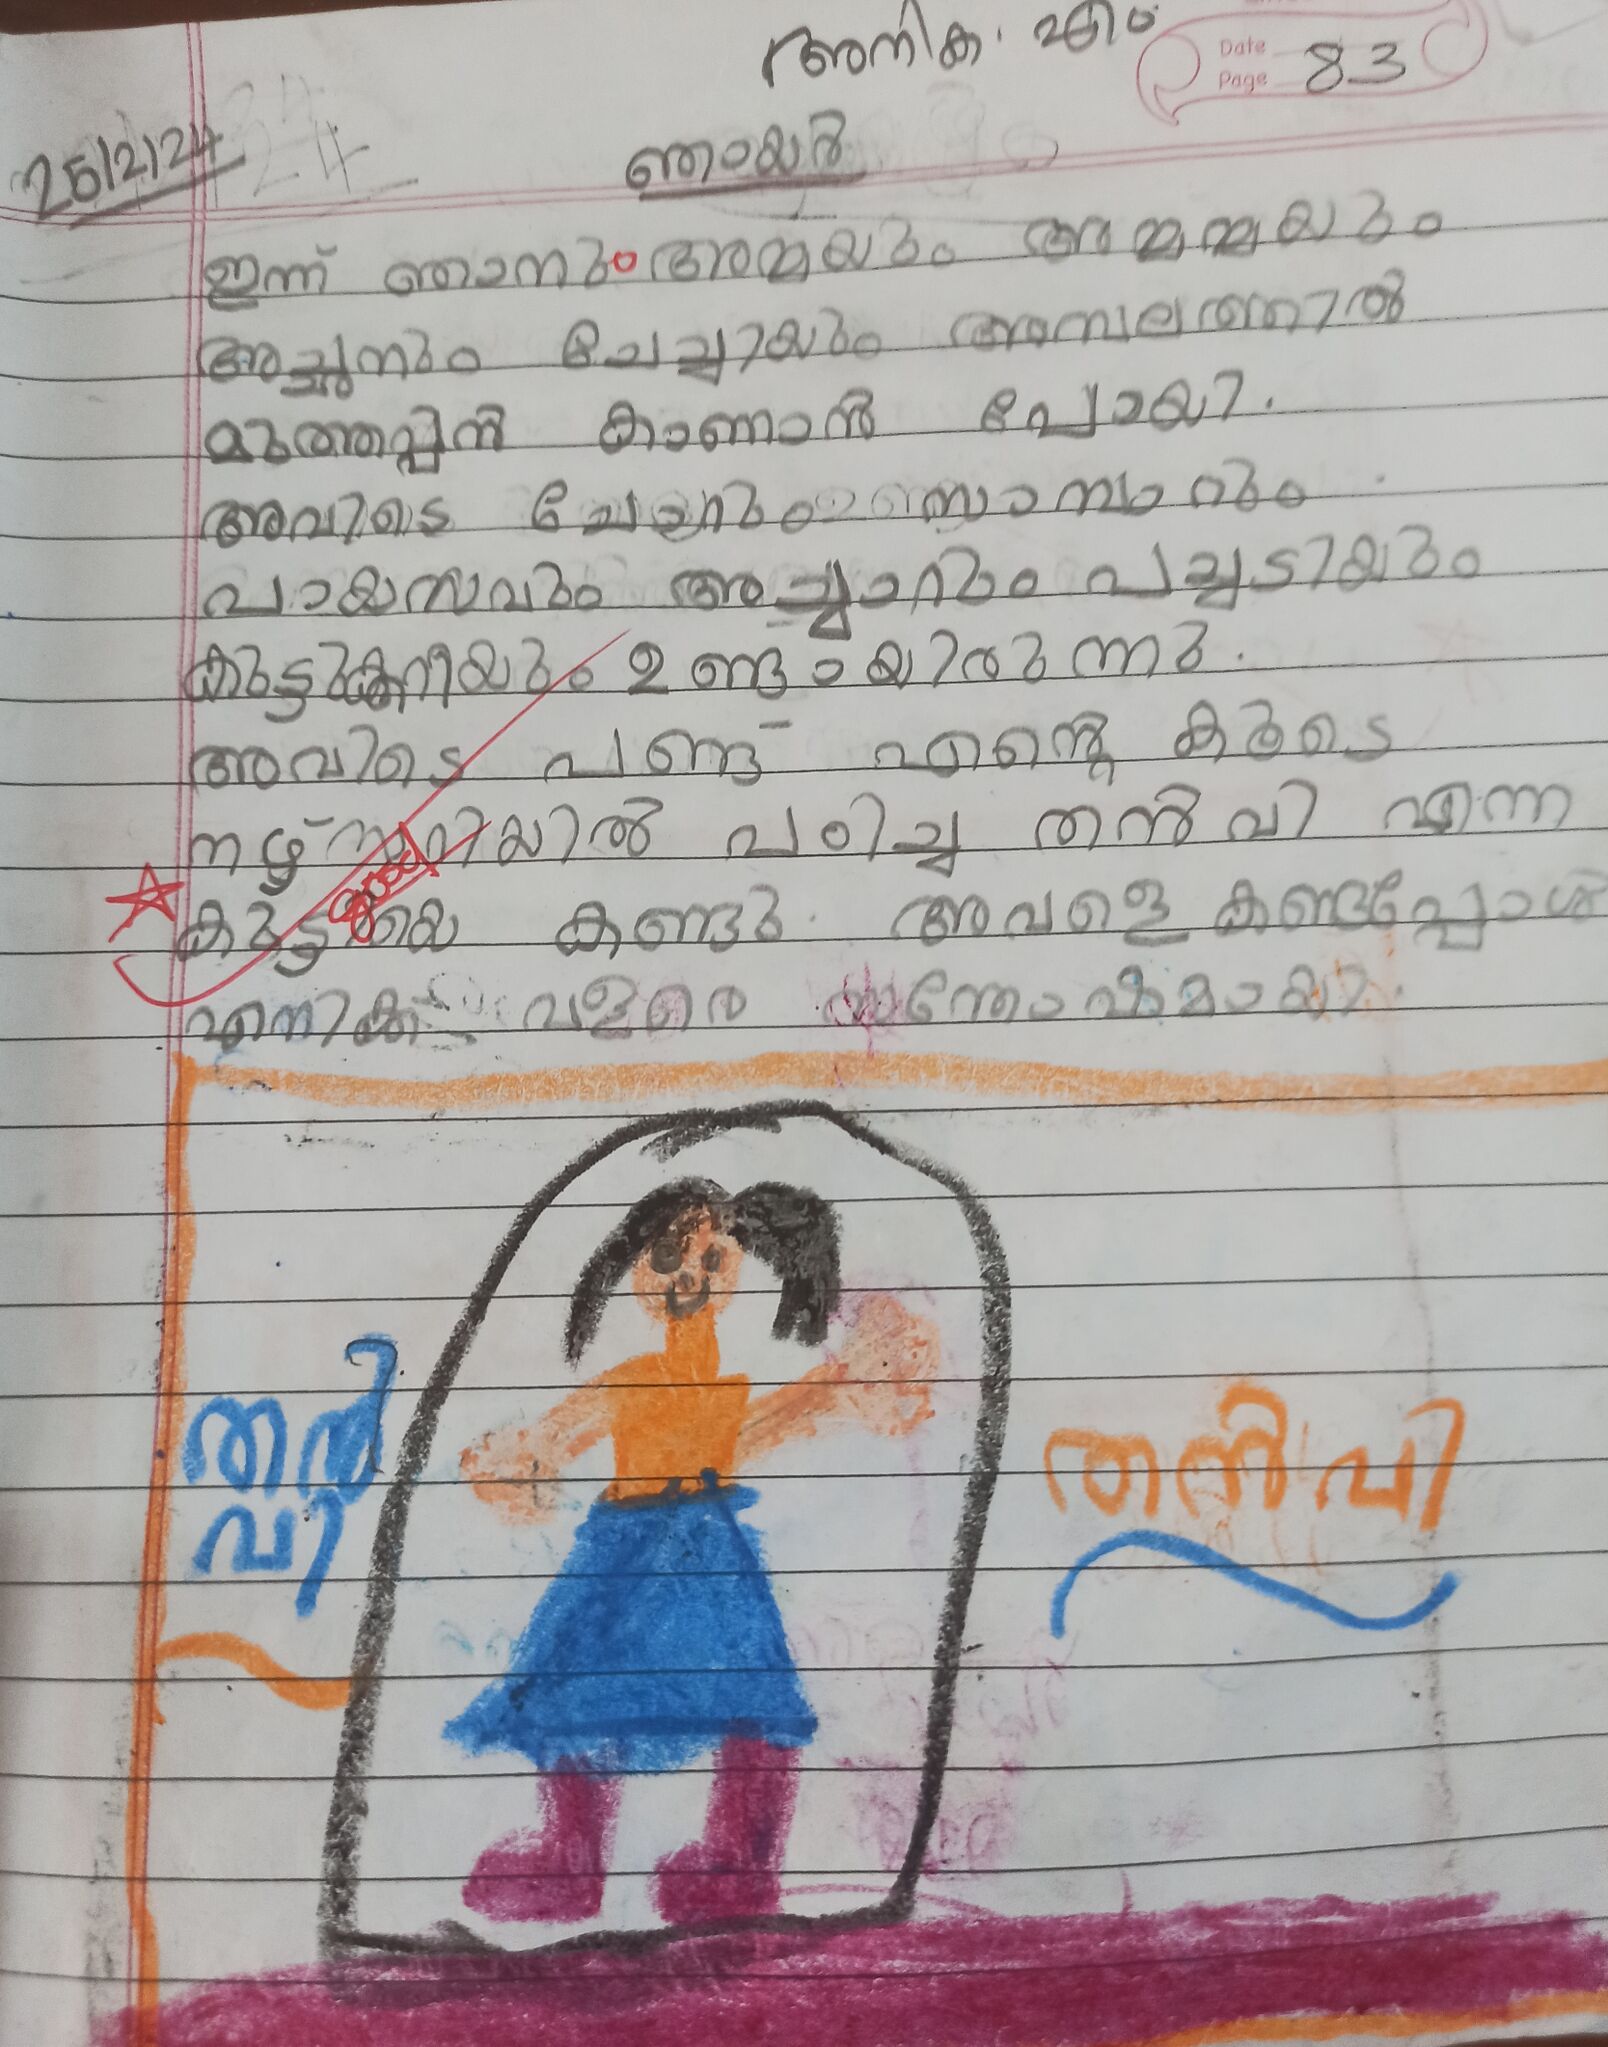 അനിക. എം
Date
Page 83
25/2/24
ഞായർ
ഇന്ന് ഞാനും അമ്മയും അമ്മമ്മയും
അച്ഛനും ചേച്ചിയും അമ്പലത്തിൽ
മുത്തപ്പൻ കാണാൻ പോയി.
അവിടെ ചോറും സാമ്പാറും
പായസവും അച്ചാറും പച്ചടിയും
കുട്ടുകറിയും ഉണ്ടായിരുന്നു.
അവിടെ പണ്ട് എന്റെ കൂടെ
നഴ്സറിയിൽ പഠിച്ച തൻവി എന്ന
Good
കുട്ടിയെ കണ്ടു. അവളെ കണ്ടപ്പോൾ
എനിക്ക് വളരെ സന്തോഷമായി.
തൻ
വി
തൻവി